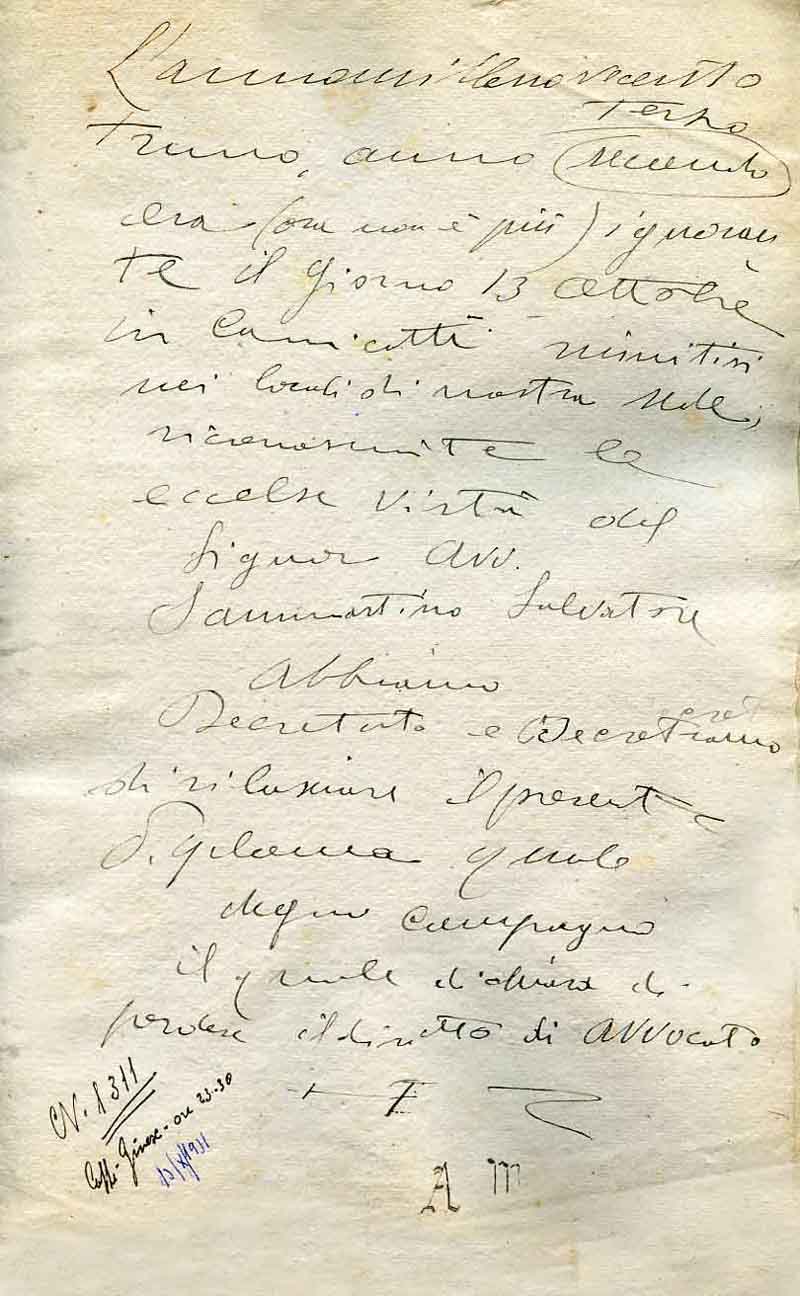 L'annomillenovecento
Terzo
Truno, anno secondo
era (ora non è più) ignoran
te il Giorno 13 Ottobre
in Camicatti riunitisi
nei locali di nostra sede,
riconosciute le
eccelse virtù del
Signor Avv.
Sammartino Salvatore
Abbiamo
Decretato e Decretiamo
di rilasciare il presente
Diploma quale
degno compagno
il quale dichiara di
perdere il diritto di AVVOCATO
N. 1311
Caffè - ore 23-30
13/X/931
A M